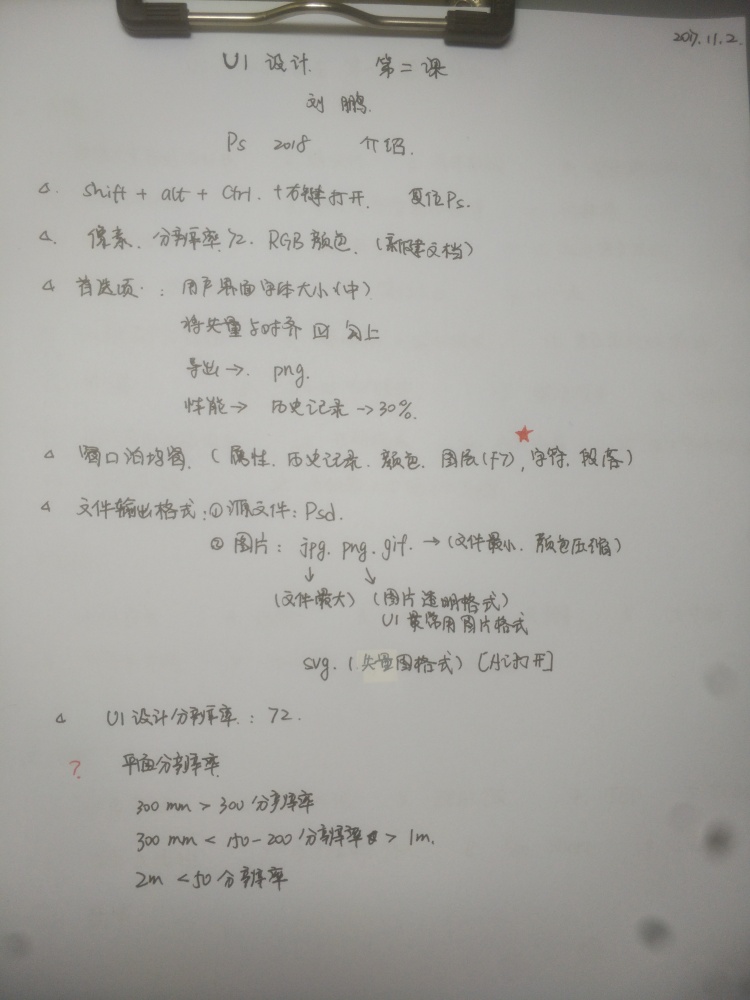 2017.11.2
UI 设计 第二课
刘鹏.
Ps 2018 介绍.
△. shift + alt + Ctrl. + 右键打开. 复位Ps.
△. 像素、分辨率72. RGB颜色. (新建文档)
△ 首选项: 用户界面字体大小(中)
将矢量与对齐 ☑ 勾上
导出→. png.
性能→ 历史记录→30%.
△ 窗口泊坞窗. (属性. 历史记录. 颜色. 图层(F7), 字符. 段落)
△ 文件输出格式: ①源文件: Psd.
② 图片: jpg. png. gif. →(文件最小. 颜色压缩)
↓ ↘
(文件最大) (图片透明格式)
UI 最常用图片格式
svg. (矢量图格式) [Ai打开]
△ UI设计分辨率: 72.
? 平面分辨率
300 mm > 300 分辨率
300 mm < 150-200 分辨率 > 1m.
2m < 50 分辨率